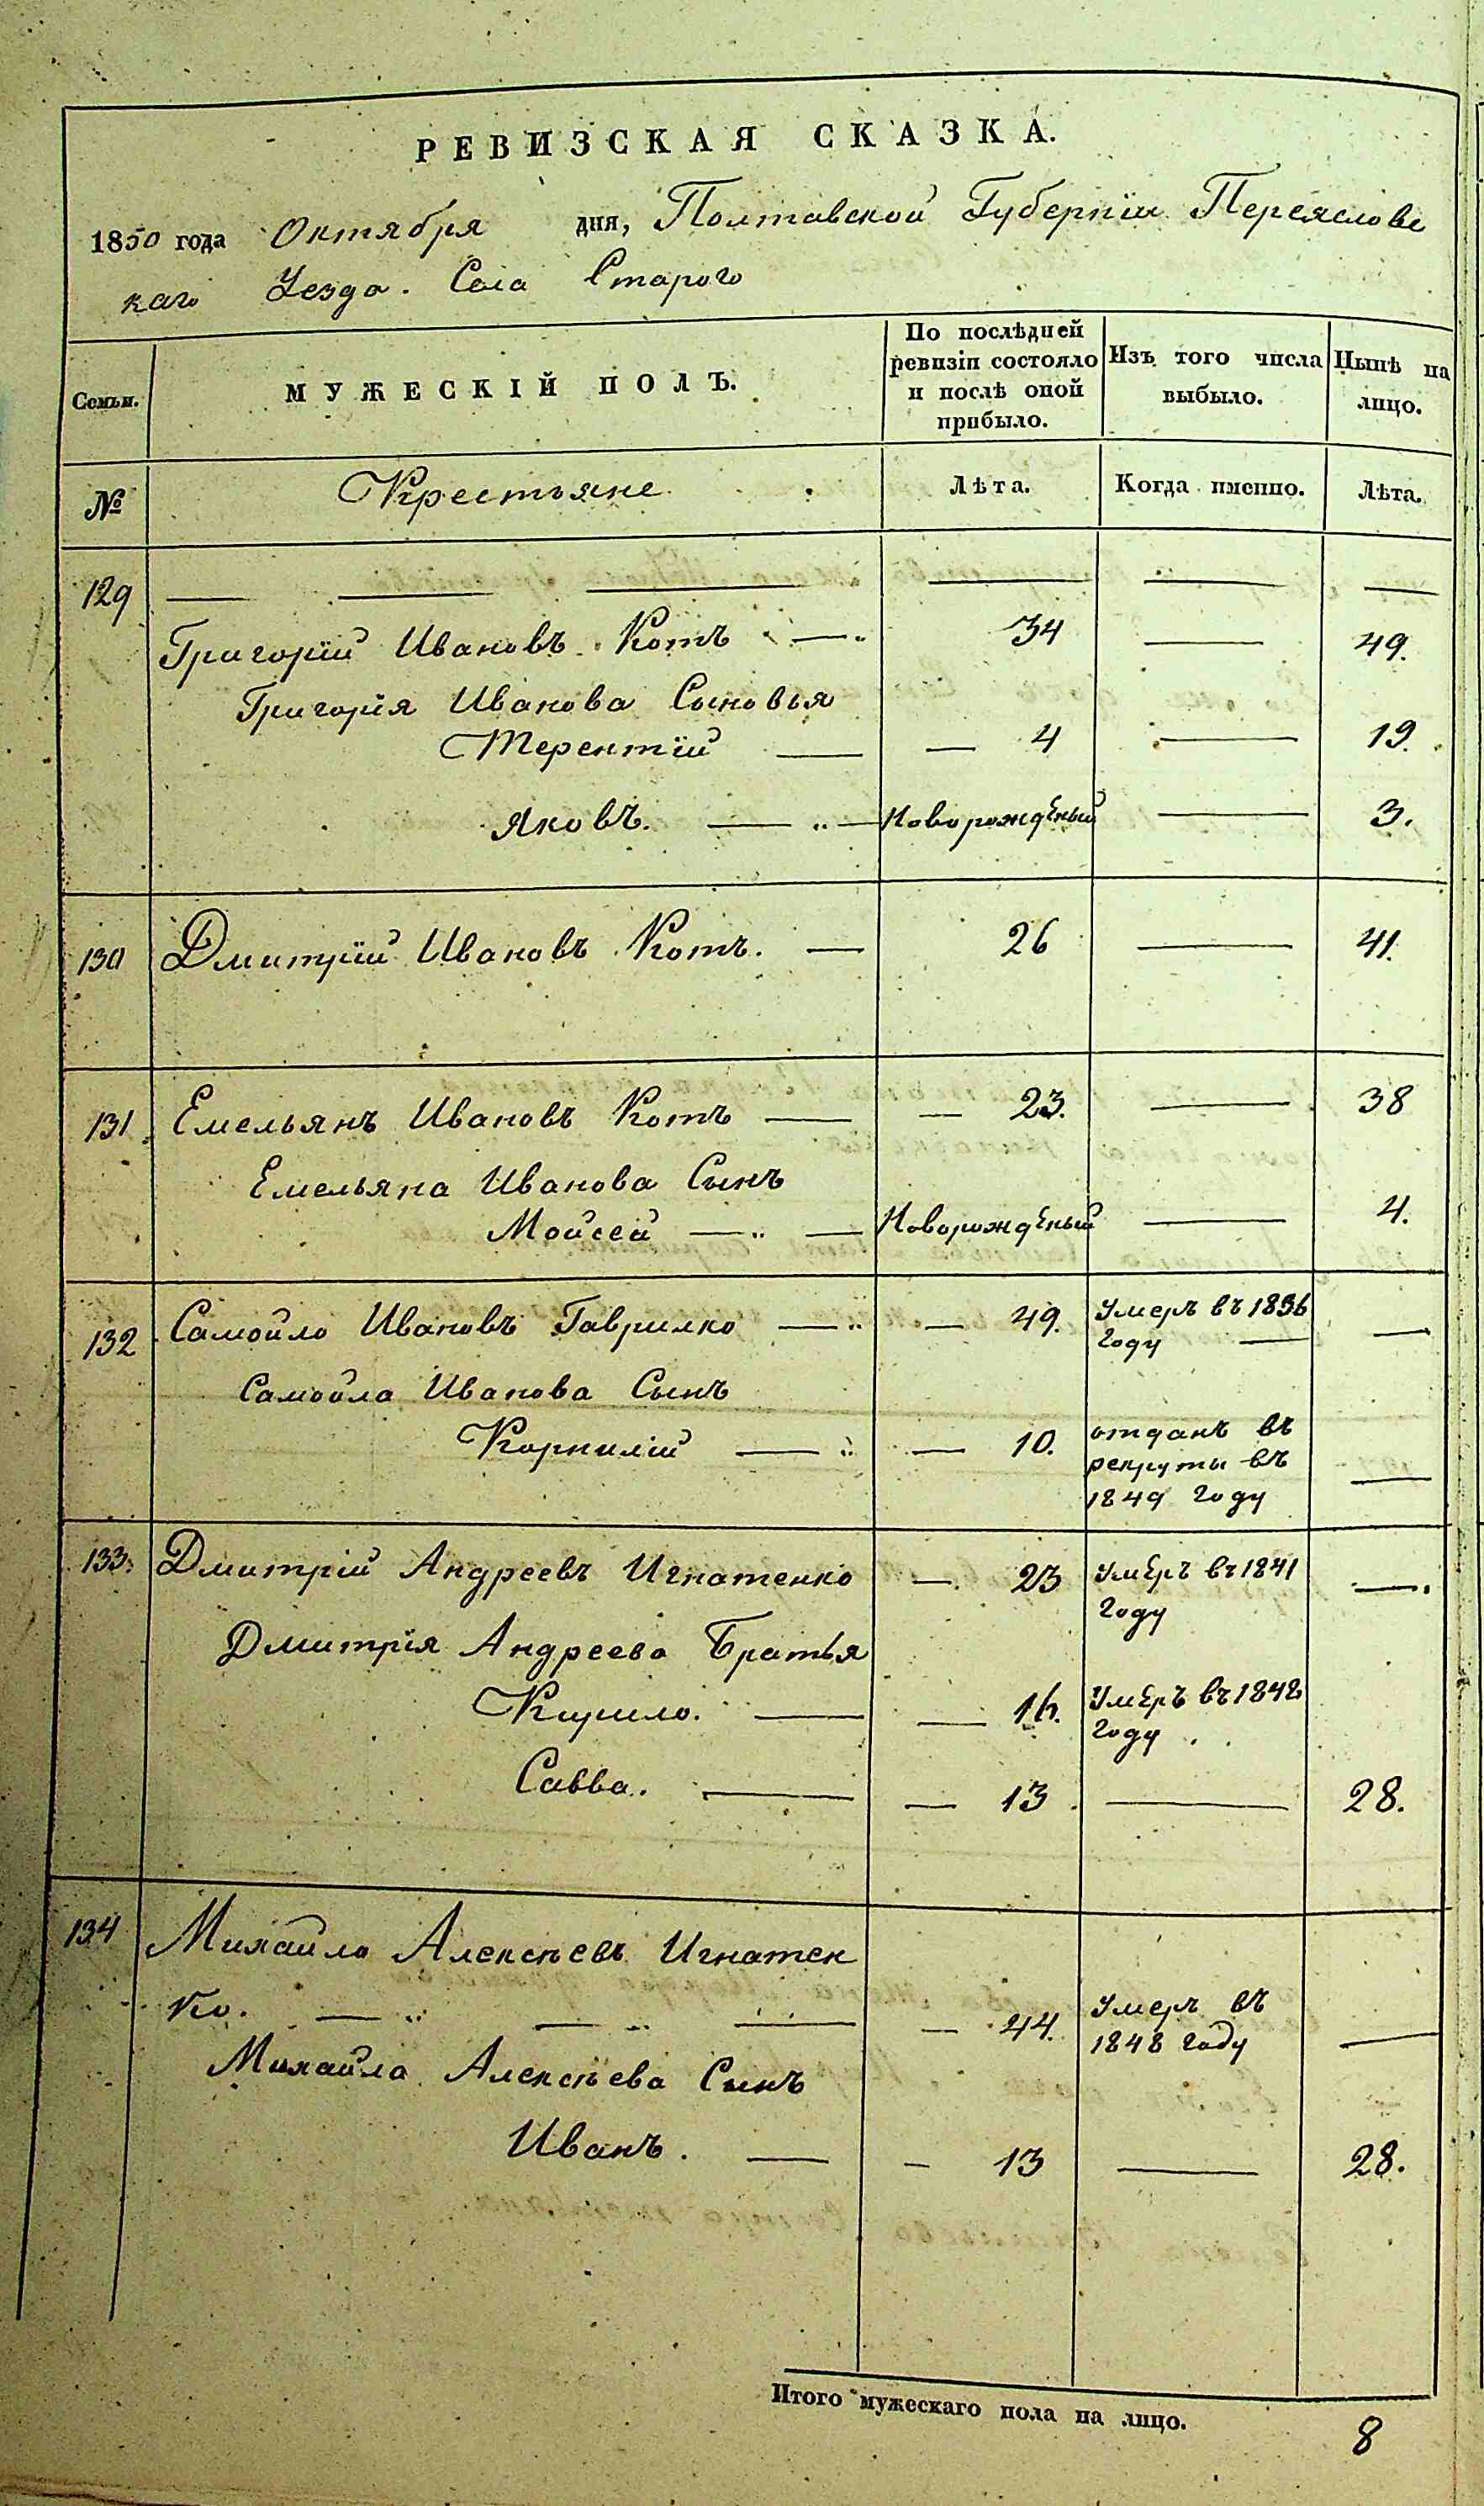 РЕВИЗСКАЯ СКАЗКА.
1850 года Октября дня, Полтавской Губернїи Переяславс
каго Уезда. Села Старого
Семьи. МУЖЕСКІЙ ПОЛЪ. По послѣдней ревизіи состояло и послѣ оной прибыло. Изъ того числа выбыло. Нынѣ на лицо.
№ Крестьяне Лѣта. Когда именно. Лѣта.
129 — — — — — —
Григорїй Ивановъ Котъ — 34 — 49.
Григорїя Иванова Сыновья
Терентїй — — 4 — 19.
Яковъ. — — Новорожденый — 3.
130 Дмитрїй Ивановъ Котъ. — 26 — 41.
131 Емельянъ Ивановъ Котъ — — 23. — 38
Емельяна Иванова Сынъ
Мойсей — — Новорожденый — 4.
132 Самойло Ивановъ Гаврилко — — 49. Умеръ въ 1836 —
году —
Самойла Иванова Сынъ
Корнилїй — — 10. отданъ въ
рекруты въ —
1849 году
133. Дмитрїй Андреевъ Игнатенко — 23 Умеръ въ 1841 —
году
Дмитрїя Андреева Братья
Кирило. — — 16. Умеръ въ 1848
году
Савва. — — 13 — 28.
134 Михайло Алексѣевъ Игнатен
ко. — — — — 44. Умеръ въ —
1848 году
Михайла Алексѣева Сынъ
Иванъ. — - 13 — 28.
Итого мужескаго пола на лицо. 8